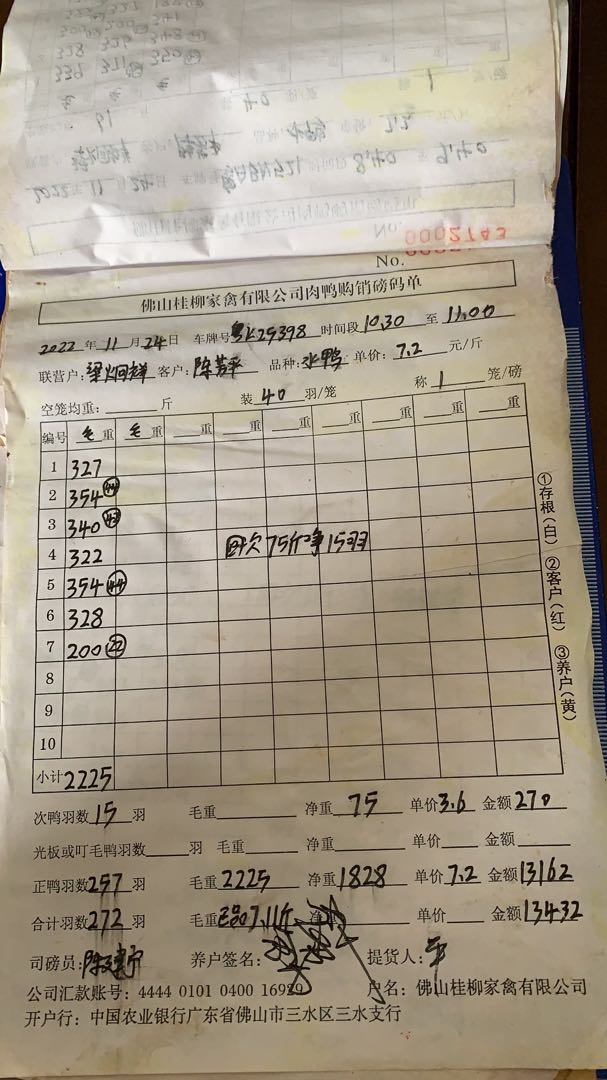 No.
0002743
No.
佛山桂柳家禽有限公司肉鸭购销磅码单
2022 年 11 月 24 日 车牌号 粤 29398 时间段 10.30 至 11.00
联营户: 梁炯辉 客户: 陈芳平 品种: 水鸭 单价: 7.2 元/斤
空笼均重: 斤 装 40 羽/笼 称 1 笼/磅
编号 毛重 毛重 重 重 重 重 重 重 重
1 327
2 354 44
3 340 43
4 322 次 75斤 15羽
5 354 44
6 328
7 200 22
8
9
10
小计 2225
①存根(白) ②客户(红) ③养户(黄)
次鸭羽数 15 羽 毛重 净重 75 单价 3.6 金额 270
光板或叮毛鸭羽数 羽 毛重 净重 单价 金额
正鸭羽数 257 羽 毛重 2225 净重 1828 单价 7.2 金额 13162
合计羽数 272 羽 毛重 7.11斤 净 单价 金额 13432
司磅员: 陈 养户签名: 提货人: 平
公司汇款账号: 4444 0101 0400 16929 户名: 佛山桂柳家禽有限公司
开户行: 中国农业银行广东省佛山市三水区三水支行